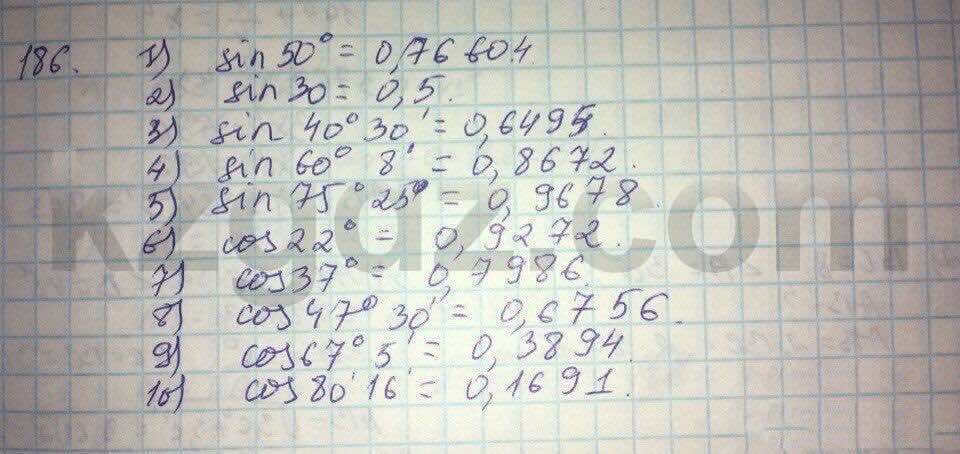 186. 1) sin 50° = 0,76604.
2) sin 30 = 0,5.
3) sin 40° 30' = 0,6495.
4) sin 60° 8' = 0,8672.
5) sin 75° 25° = 0,9678.
6) cos 22° = 0,9272.
7) cos 37° = 0,7986.
8) cos 47° 30' = 0,6756.
9) cos 67° 5' = 0,3894.
10) cos 80' 16' = 0,1691.
kzgdz.com